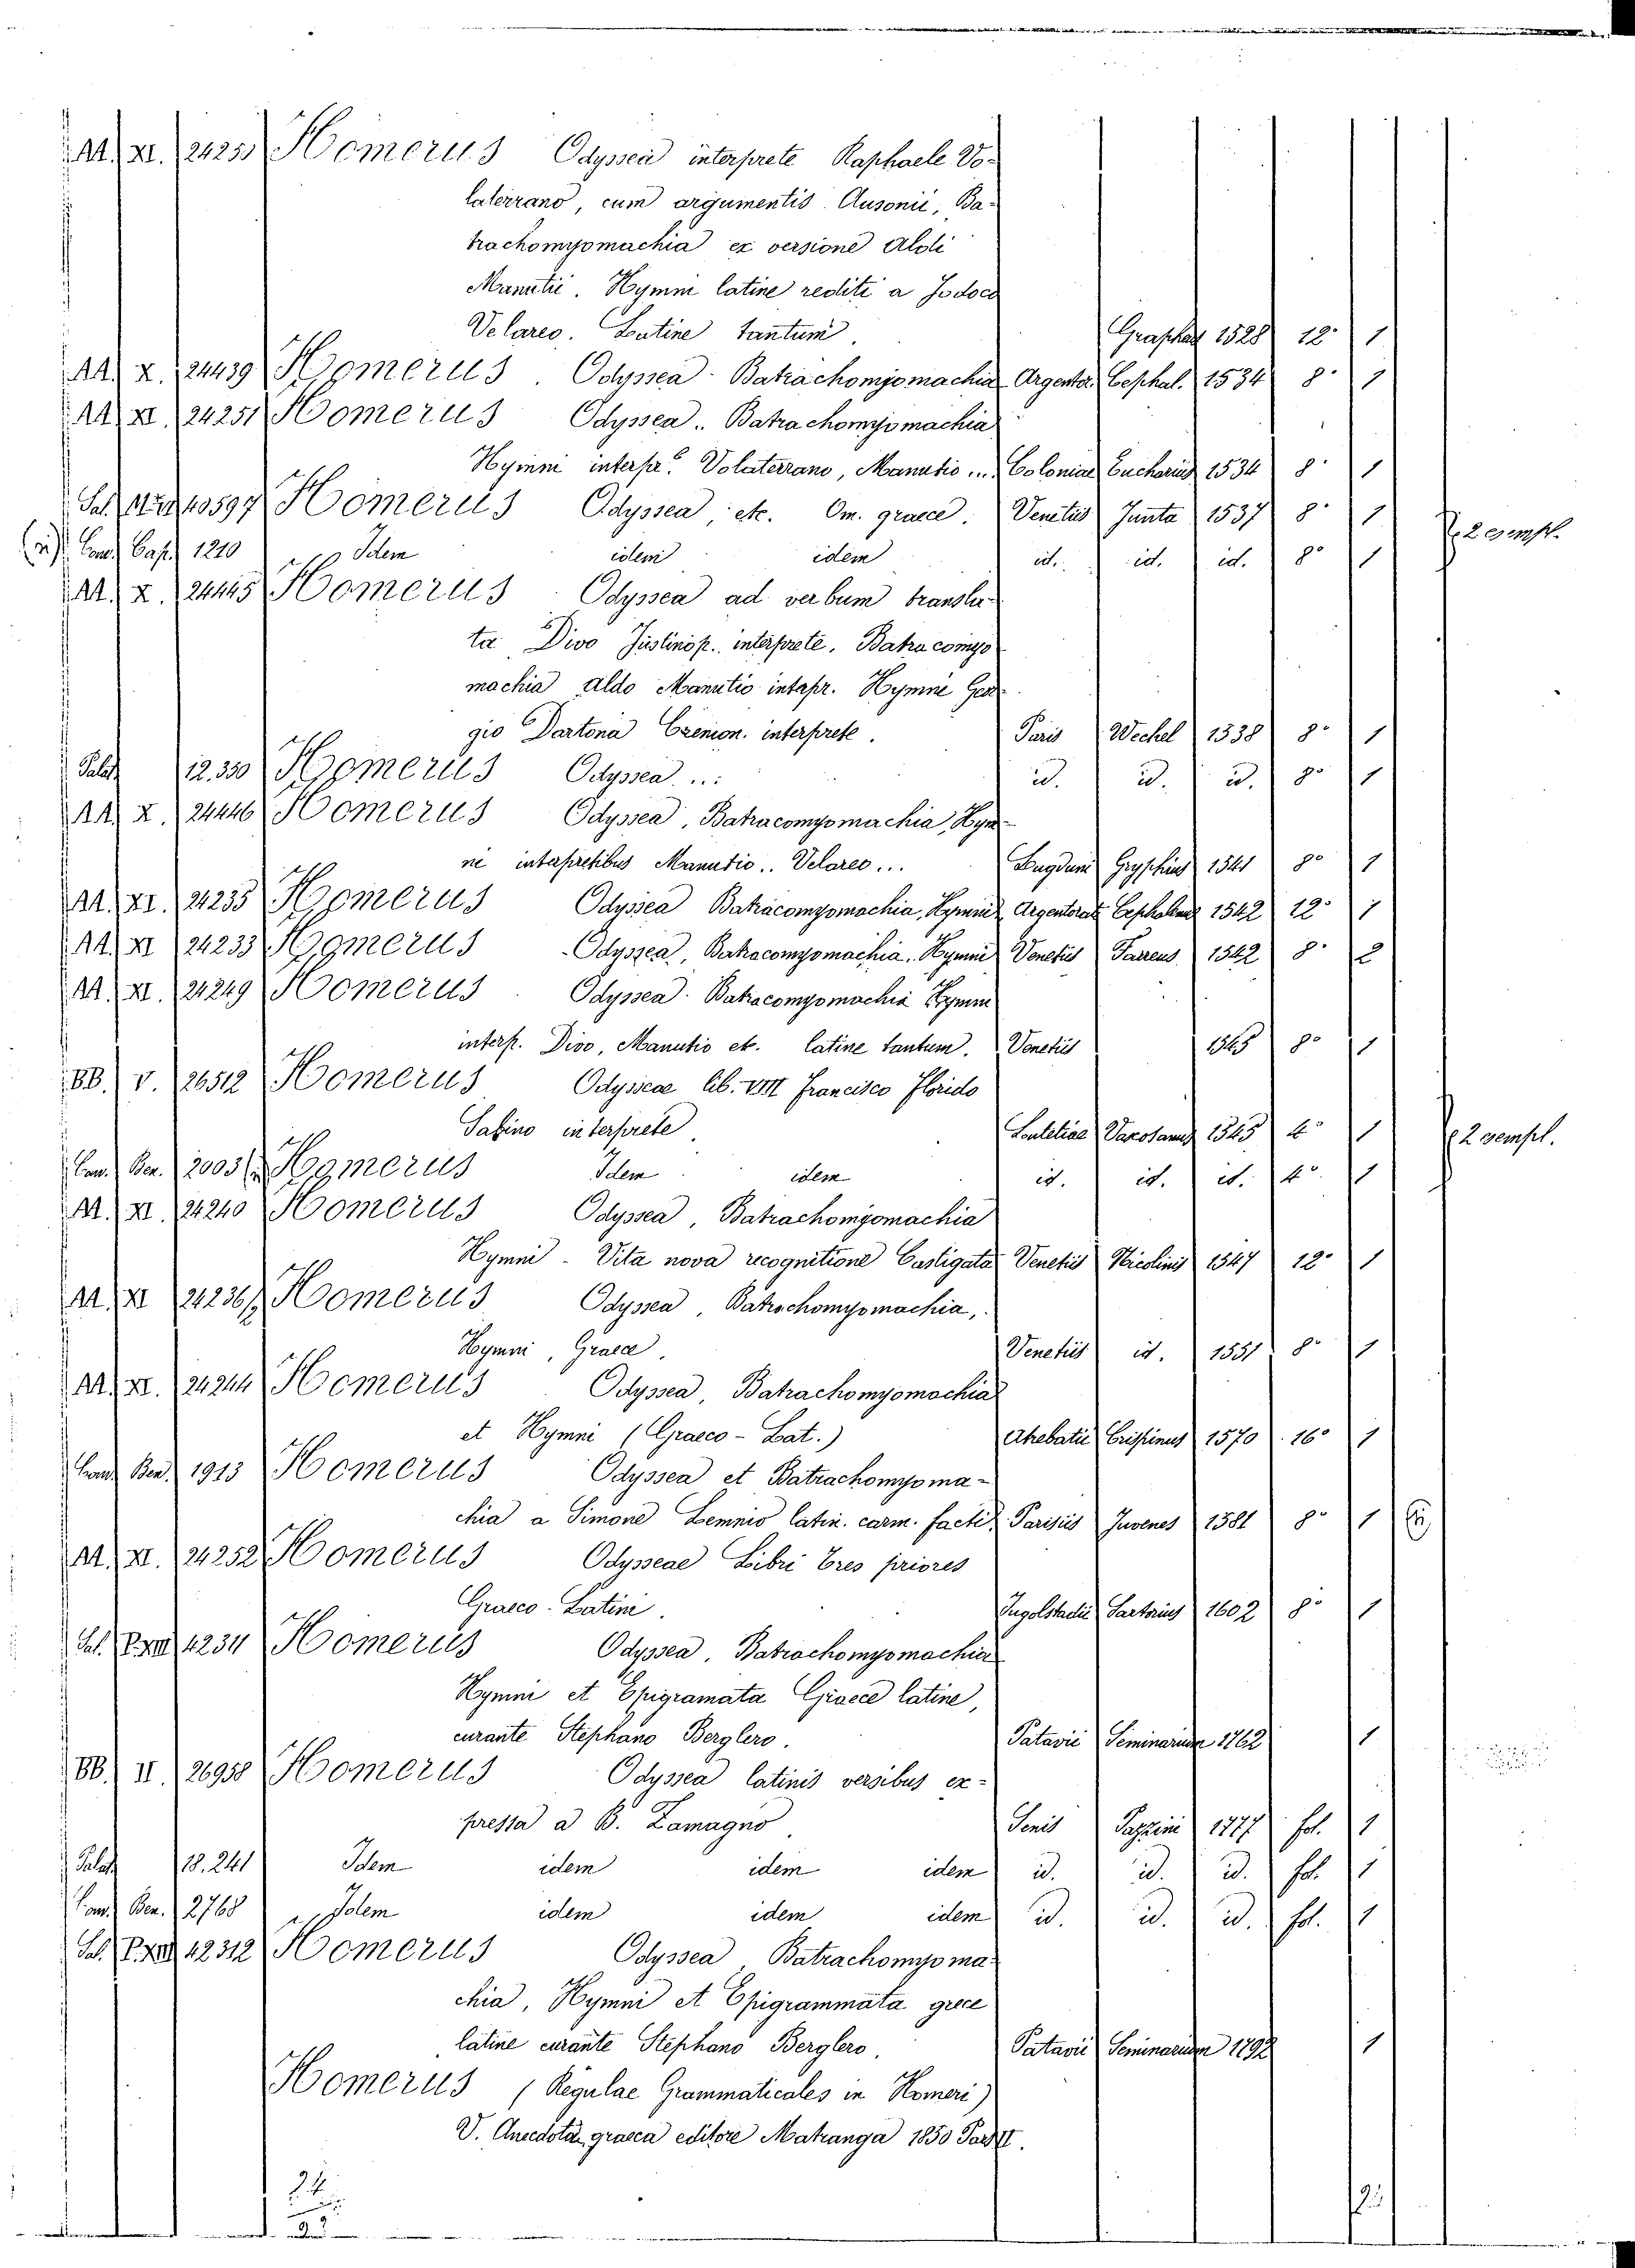 AA. XI. 24253 Homerus Odyssea interprete Raphaele Vo-
laterrano, cum argumentis Ausonii, Ba-
trachomyomachia ex versione Aldi
Manutii. Hymni latine rediti a Jodoco
Velareo. Latine tantum. Graphat 1528 12° 1
AA. X. 24439 Homerus. Odyssea - Batrachomyomachia Argentor. Cephal. 1534 8° 1
AA. XI. 24251 Homerus Odyssea.. Batrachomyomachia
Hymni interpr. Volaterrano, Manutio ... Coloniae Eucharius 1534 8° 1
40597 Homerus Odyssea, etc. Om. graece. Venetiis Junta 1537 8° 1
Cap. 1210 Idem idem idem id. id. id. 8° 1 2 esempl.
AA. X. 24445 Homerus Odyssea ad verbum transla-
ta Divo Justinop. interprete. Batracomyo
machia Aldo Manutio interpr. Hymni Geor
gio Dartona Cremon. interprete. Paris Wechel 1538 8° 1
Palat 12.350 Homerus Odyssea ... id. id. id. 8° 1
AA. X. 24446 Homerus Odyssea, Batracomyomachia, Hym-
ni interpretibus Manutio.. Velareo... Lugduni Gryphius 1541 8° 1
AA. XI. 24235 Homerus Odyssea Batracomyomachia, Hymni Argentorat Cephaleus 1542 12° 1
AA. XI 24233 Homerus Odyssea, Batracomyomachia. Hymni Venetiis Farreus 1542 8° 2
AA. XI. 24249 Homerus Odyssea. Batracomyomachia Hymni
interp. Divo, Manutio etc. latine tantum. Venetiis 1545 8° 1
BB. V. 26512 Homerus Odysseae lib. VIII Francisco Florido
Sabino interprete Lutetiae Vascosanus 1545 4° 1
Ben. 2003 Homerus Idem idem id. id. id. 4° 1 2 esempl.
AA. XI. 24240 Homerus Odyssea, Batrachomyomachia
Hymni - Vita nova recognitione Castigata Venetiis Nicolinis 1547 12° 1
AA. XI 24236 Homerus Odyssea, Batrochomyomachia,
Hymni, Graece. Venetiis id. 1551 8° 1
AA. XI. 24244 Homerus Odyssea, Batrachomyomachia
et Hymni (Graeco-Lat.) Atrebatii Crispinus 1570 16° 1
Ben. 1913 Homerus Odyssea et Batrachomyoma-
chia a Simone Lemnio latin. carm. facti Parisiis Juvenes 1581 8° 1
AA. XI. 24252 Homerus Odysseae Libri Tres priores
Graeco-Latini. Ingolstadii Sartorius 1602 8° 1
4234 Homerus Odyssea, Batrachomyomachia
Hymni et Epigramata Graece latine,
curante Stephano Berglero. Patavii Seminarium 1762 1
BB. II. 26958 Homerus Odyssea latinis versibus ex-
pressa a B. Zamagno Senis Pazzini 1777 fol. 1
Palat 18.241 Idem idem idem idem id. id. id. fol. 1
Ben. 2768 Idem idem idem idem id. id. id. fol. 1
42312 Homerus Odyssea, Batrachomyoma-
chia, Hymni et Epigrammata grece
latine curante Stephano Berglero. Patavii Seminarium 1792 1
Homerus (Regulae Grammaticales in Homeri)
V. Anecdota graeca editore Matranga 1850 Pars II.
24